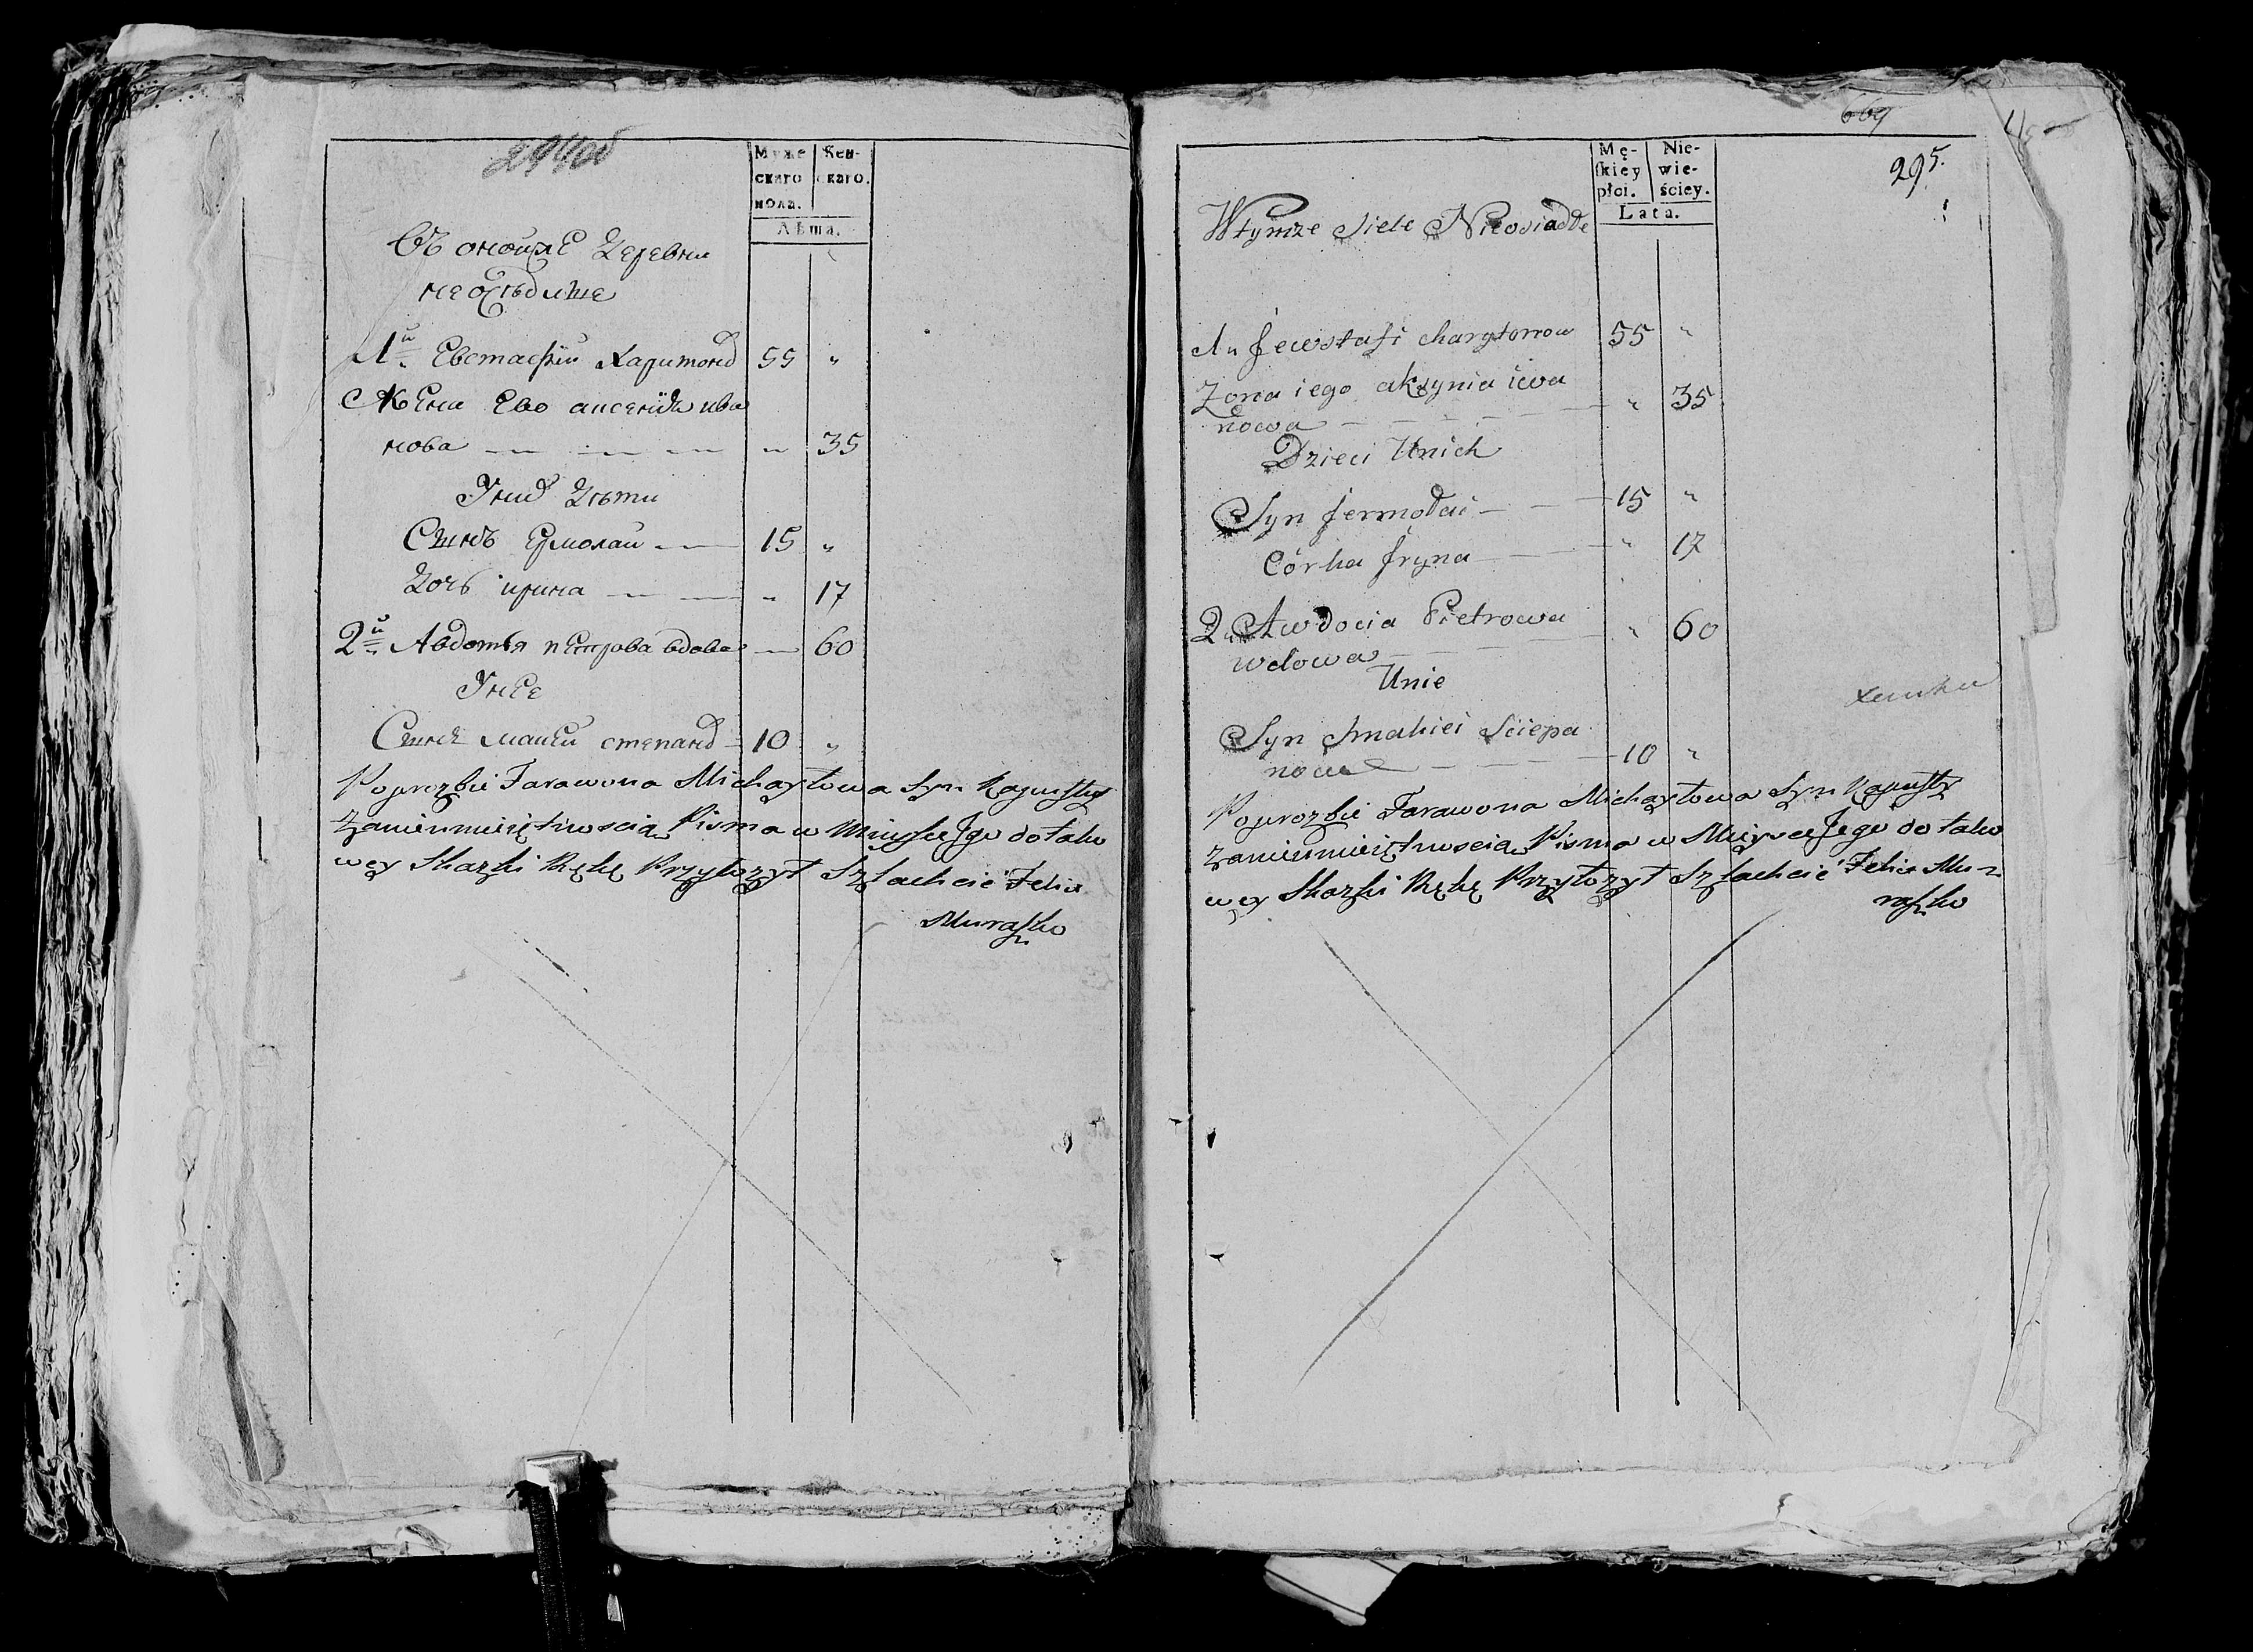 294об
Муже
скаго
пола.
Жен-
скаго.
Лѣта.
Въ оной же Деревни
неоседлые
1й Евстафий Харитонов 55 "
Жена Ево аксения ива
нова " 35
У них Дѣти
Сынъ Ермолай 15 "
Дочь ирина " 17
2й Авдотья петрова вдова 60
У нее
Сынъ макей степанов 10 "
Poprozbie Farawona Michayłowa Syn Kapusty
Zanieumieiętnoscią Pisma w Mieysce Jego do takо
wey Skazki Rękę Przyłożył Szlachcic Felix
Muraszko
669
295.
Mę-
skiey
płci.
Nie-
wie-
ściey.
Lata.
W tymze Siele Nieosiadłe
1 u Jewstafi charytonow 55 "
Zona iego aksynia iwa
nowa " 35
Dzieci Unich
Syn Jermołai 15 "
Córka Jryna " 17
2 Awdocia Pietrowa
wdowa " 60
Unie
Syn Makiei Sciepa
now 10 "
Poprozbie Farawona Michayłowa Syn Kapusty
Zanieumieiętnoscią Pisma w Mieysce Jego do tako
wey Skazki Rękę Przyłożył Szlachcic Felix Mu-
raszko